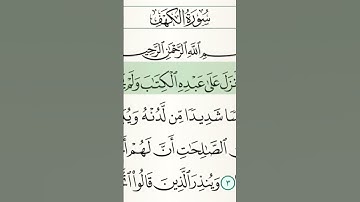 سُورَةُ الْكَهْفِ
ـمِ اللَّهِ الرَّحْمَٰنِ الرَّحِيـ
نزَلَ عَلَىٰ عَبْدِهِ الْكِتَٰبَ وَلَمْ
شَدِيدًا مِّن لَّدُنْهُ
الصَّٰلِحَٰتِ أَنَّ لَهُمْ
٣ وَيُنذِرَ الَّذِينَ قَالُوا